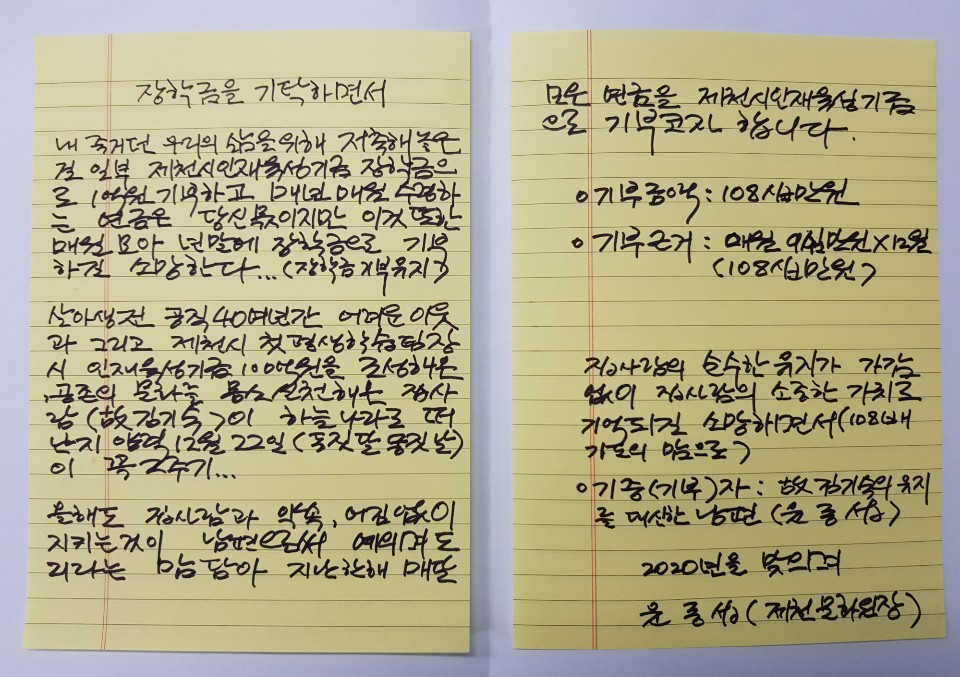 장학금을 기탁하면서
내 죽거던 우리의 삶을 위해 저축해 놓은
걸 일부 제천시인재육성기금 장학금으
로 1억원 기부하고 매년 매월 수령하
는 연금은 당신 몫이지만 이것 또한
매월 모아 년말에 장학금으로 기부
하길 소망한다...(장학금기부유지)
살아생전 공직 40여년간 어려운 이웃
과 그리고 제천시 첫 평생학습팀장
시 인재육성기금 100억원을 조성해온
공존의 문화를 몸소 실천해온 집사
람(故김기숙)이 하늘나라로 떠
난지 양력 12월 22일(동짓달 동짓날)
이 꼭 2주기...
올해도 집사람과 약속, 어김없이
지키는것이 남편으로써 예의며 도
리라는 맘 담아 지난한해 매달
모은 연금을 제천시인재육성기금
으로 기부코자 합니다.
○기부총액: 108십만원
○기부근거: 매월 9십만원×12월
(108십만원)
집사람의 순수한 유지가 가감
없이 집사람의 소중한 가치로
기억되길 소망하면서(108배
기도의 맘으로)
○기증(기부)자: 故김기숙의 유지
를 대신한 남편 (윤종섭)
2020년을 맞으며
윤종섭(제천문화원장)